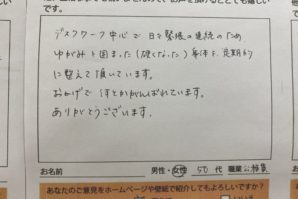 デスクワーク中心で日々緊張の連続のため
ゆがみと固まった(硬くなった)身体を定期的
に整えて頂いています。
おかげで何とかがんばれています。
ありがとうございます。
お名前 男性・女性 50代 職業 公務員
あなたのご意見をホームページや壁紙で紹介してもよろしいですか?